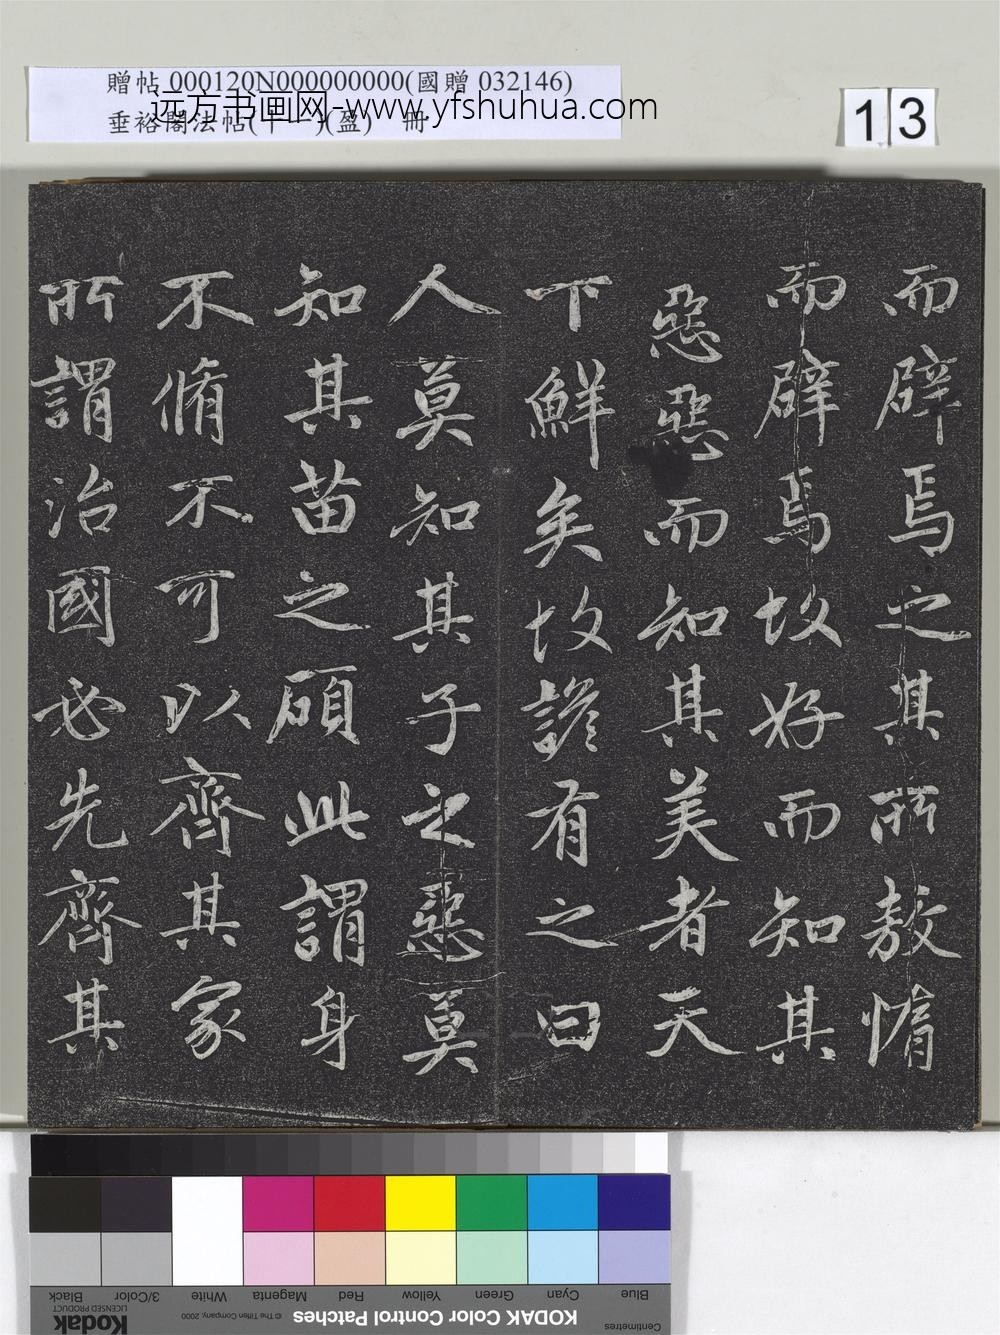 贈帖 000120N000000000(國贈 032146)
垂裕閣法帖(十一)(盈) 冊
远方书画网-www.yfshuhua.com
13
而辟焉之其所敖惰
而辟焉故好而知其
惡惡而知其美者天
下鮮矣故諺有之曰
人莫知其子之惡莫
知其苗之碩此謂身
不脩不可以齊其家
所謂治國必先齊其
Blue
Cyan
Green
Yellow
Red
Magenta
White
3/Color
Black
Centimetres
KODAK Color Control Patches
© The Tiffen Company, 2000
Kodak
LICENSED PRODUCT